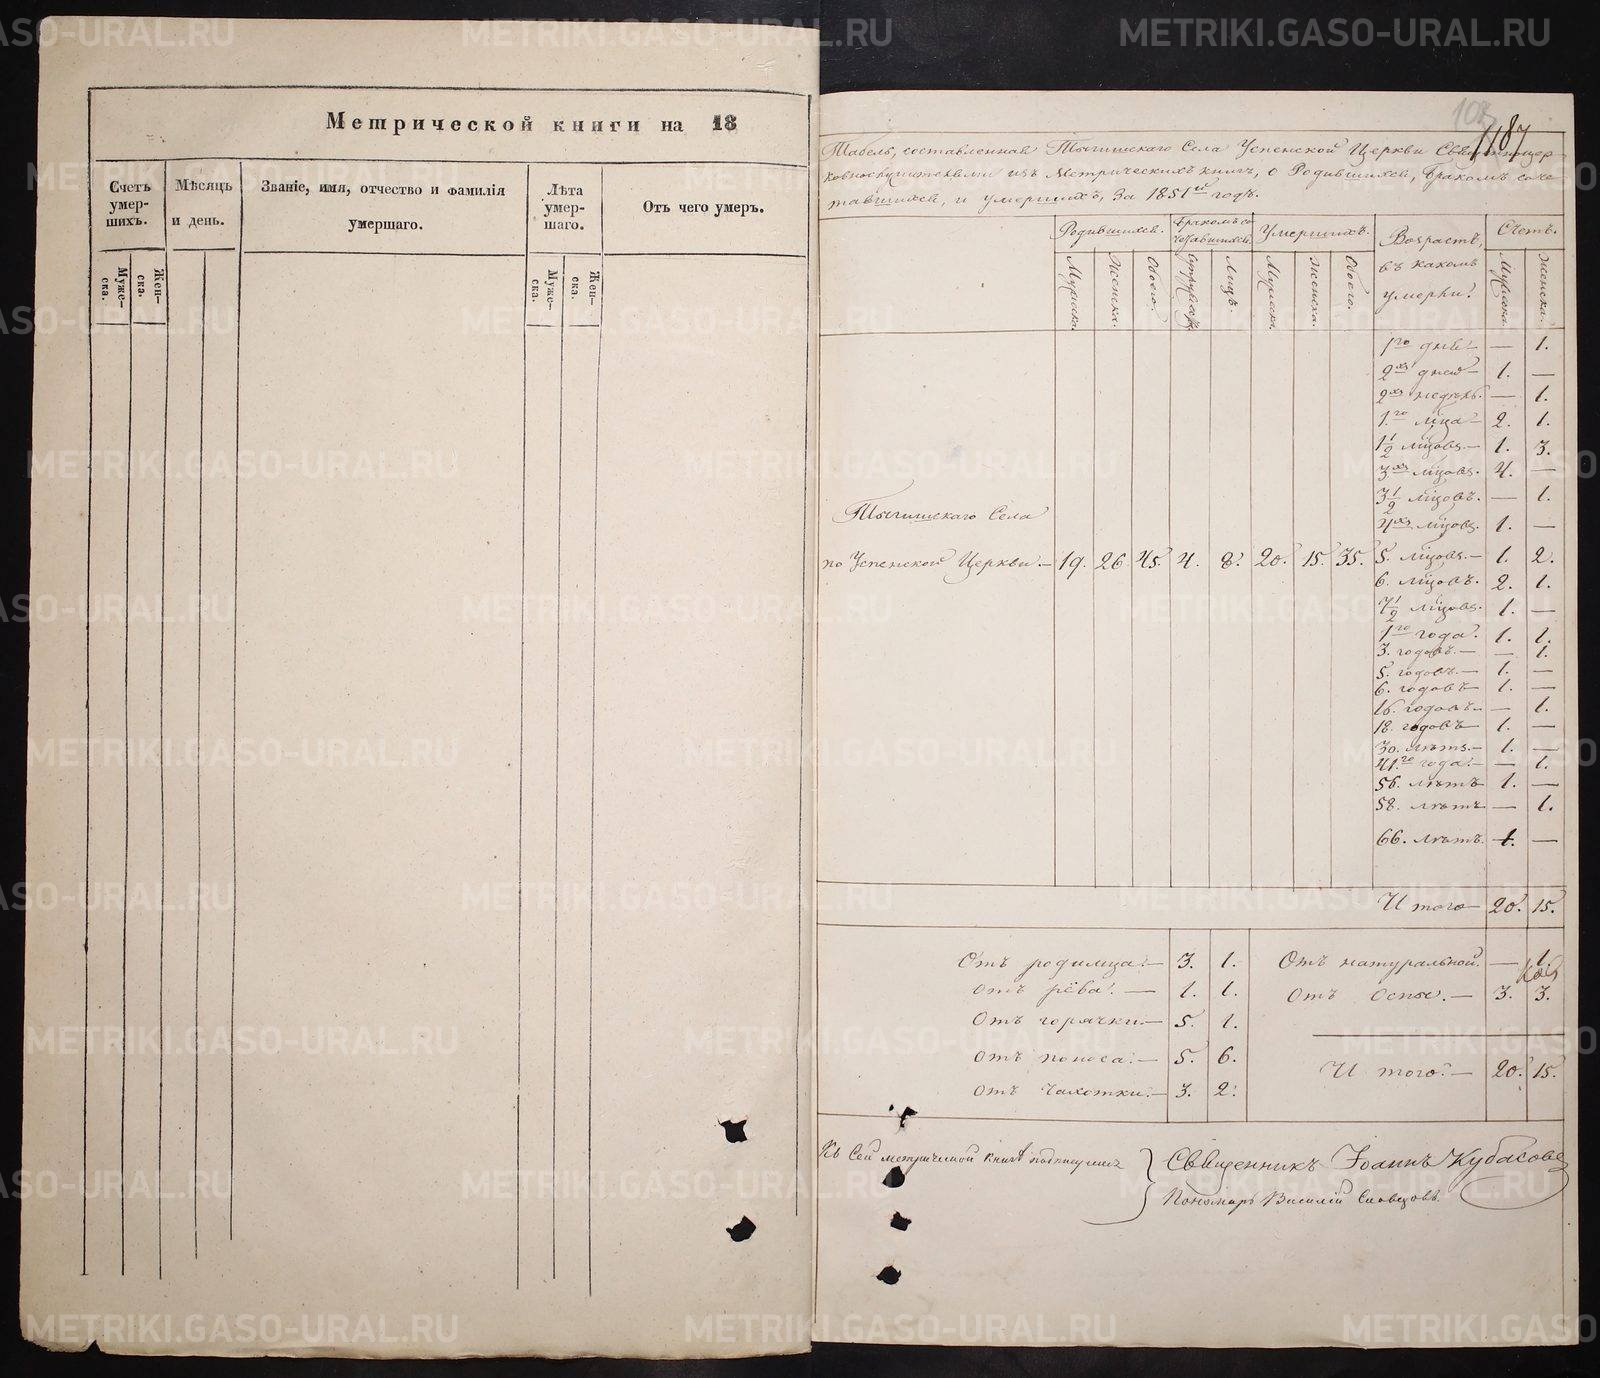 Метрической книги на 18
Счетъ умер- шихъ.
Муже- ска.
Жен- ска.
Мѣсяцъ и день.
Званіе, имя, отчество и фамилія умершаго.
Лѣта умер- шаго.
Муже- ска.
Жен- ска.
Отъ чего умеръ.
1187
Табель, составленная Тыгишскаго Села Успенской Церкви Священноцер-
ковнослужителями изъ Метрическихъ книгъ, о Родившихся, Бракомъ соче-
тавшихся, и умершихъ, за 1851й годъ.
Родившихся. Бракомъ со- четавшихся. Умершихъ. Возрастъ, въ какомъ умерли? Счетъ.
Мужска. Женска. Обоего. Супружествъ Лицъ. Мужска. Женска. Обоего. Мужска. Женска.
1го дня — — 1.
2хъ дней — 1. —
2хъ недѣль. — 1.
1го мца — 2. 1.
1½ мцовъ. — 1. 3.
3хъ мцовъ. 4. —
3½ мцовъ. — 1.
4хъ мцовъ. 1. —
Тыгишскаго Села
по Успенской Церкви. — 19. 26. 45. 4. 8. 20. 15. 35. 5. мцовъ. — 1. 2.
6. мцовъ. 2. 1.
7½ мцовъ. 1. —
1го года. 1. 1.
3. годовъ. — — 1.
5. годовъ. — 1. —
6. годовъ — 1. —
16. годовъ. — — 1.
18. годовъ — 1. —
30. лѣтъ. — 1. —
41.го года. — — 1.
56. лѣтъ 1. —
58. лѣтъ — 1.
66. лѣтъ. 1. —
Итого — 20. 15.
Отъ родимца. — 3. 1. Отъ натуральной. — — 1.
отъ рёва. — 1. 1. отъ Оспы. — 3. 3.
отъ горячки. — 5. 1.
отъ поноса. — 5. 6. Итого. — 20. 15.
отъ Чахотки. — 3. 2.
Къ Сей метрической книгѣ подписуемся
Священникъ Іоаннъ Кубасовъ
Пономарь Василій Словцовъ.
METRIKI.GASO-URAL.RU